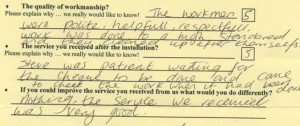 • The quality of workmanship? The workmen 5
Please explain why ... we really would like to know!
were Polite, helpfull, respectfull,
work was done to a high standered
and they cleaned up after themselfs.
• The service you received after the installation? 5
Please explain why ... we really would like to know!
Steve was patient waiting for
the cheque to be done and came
to check the work when it had been done
• If you could improve the service you received from us what would you do differently?
Nothing, the service we received
was very good.